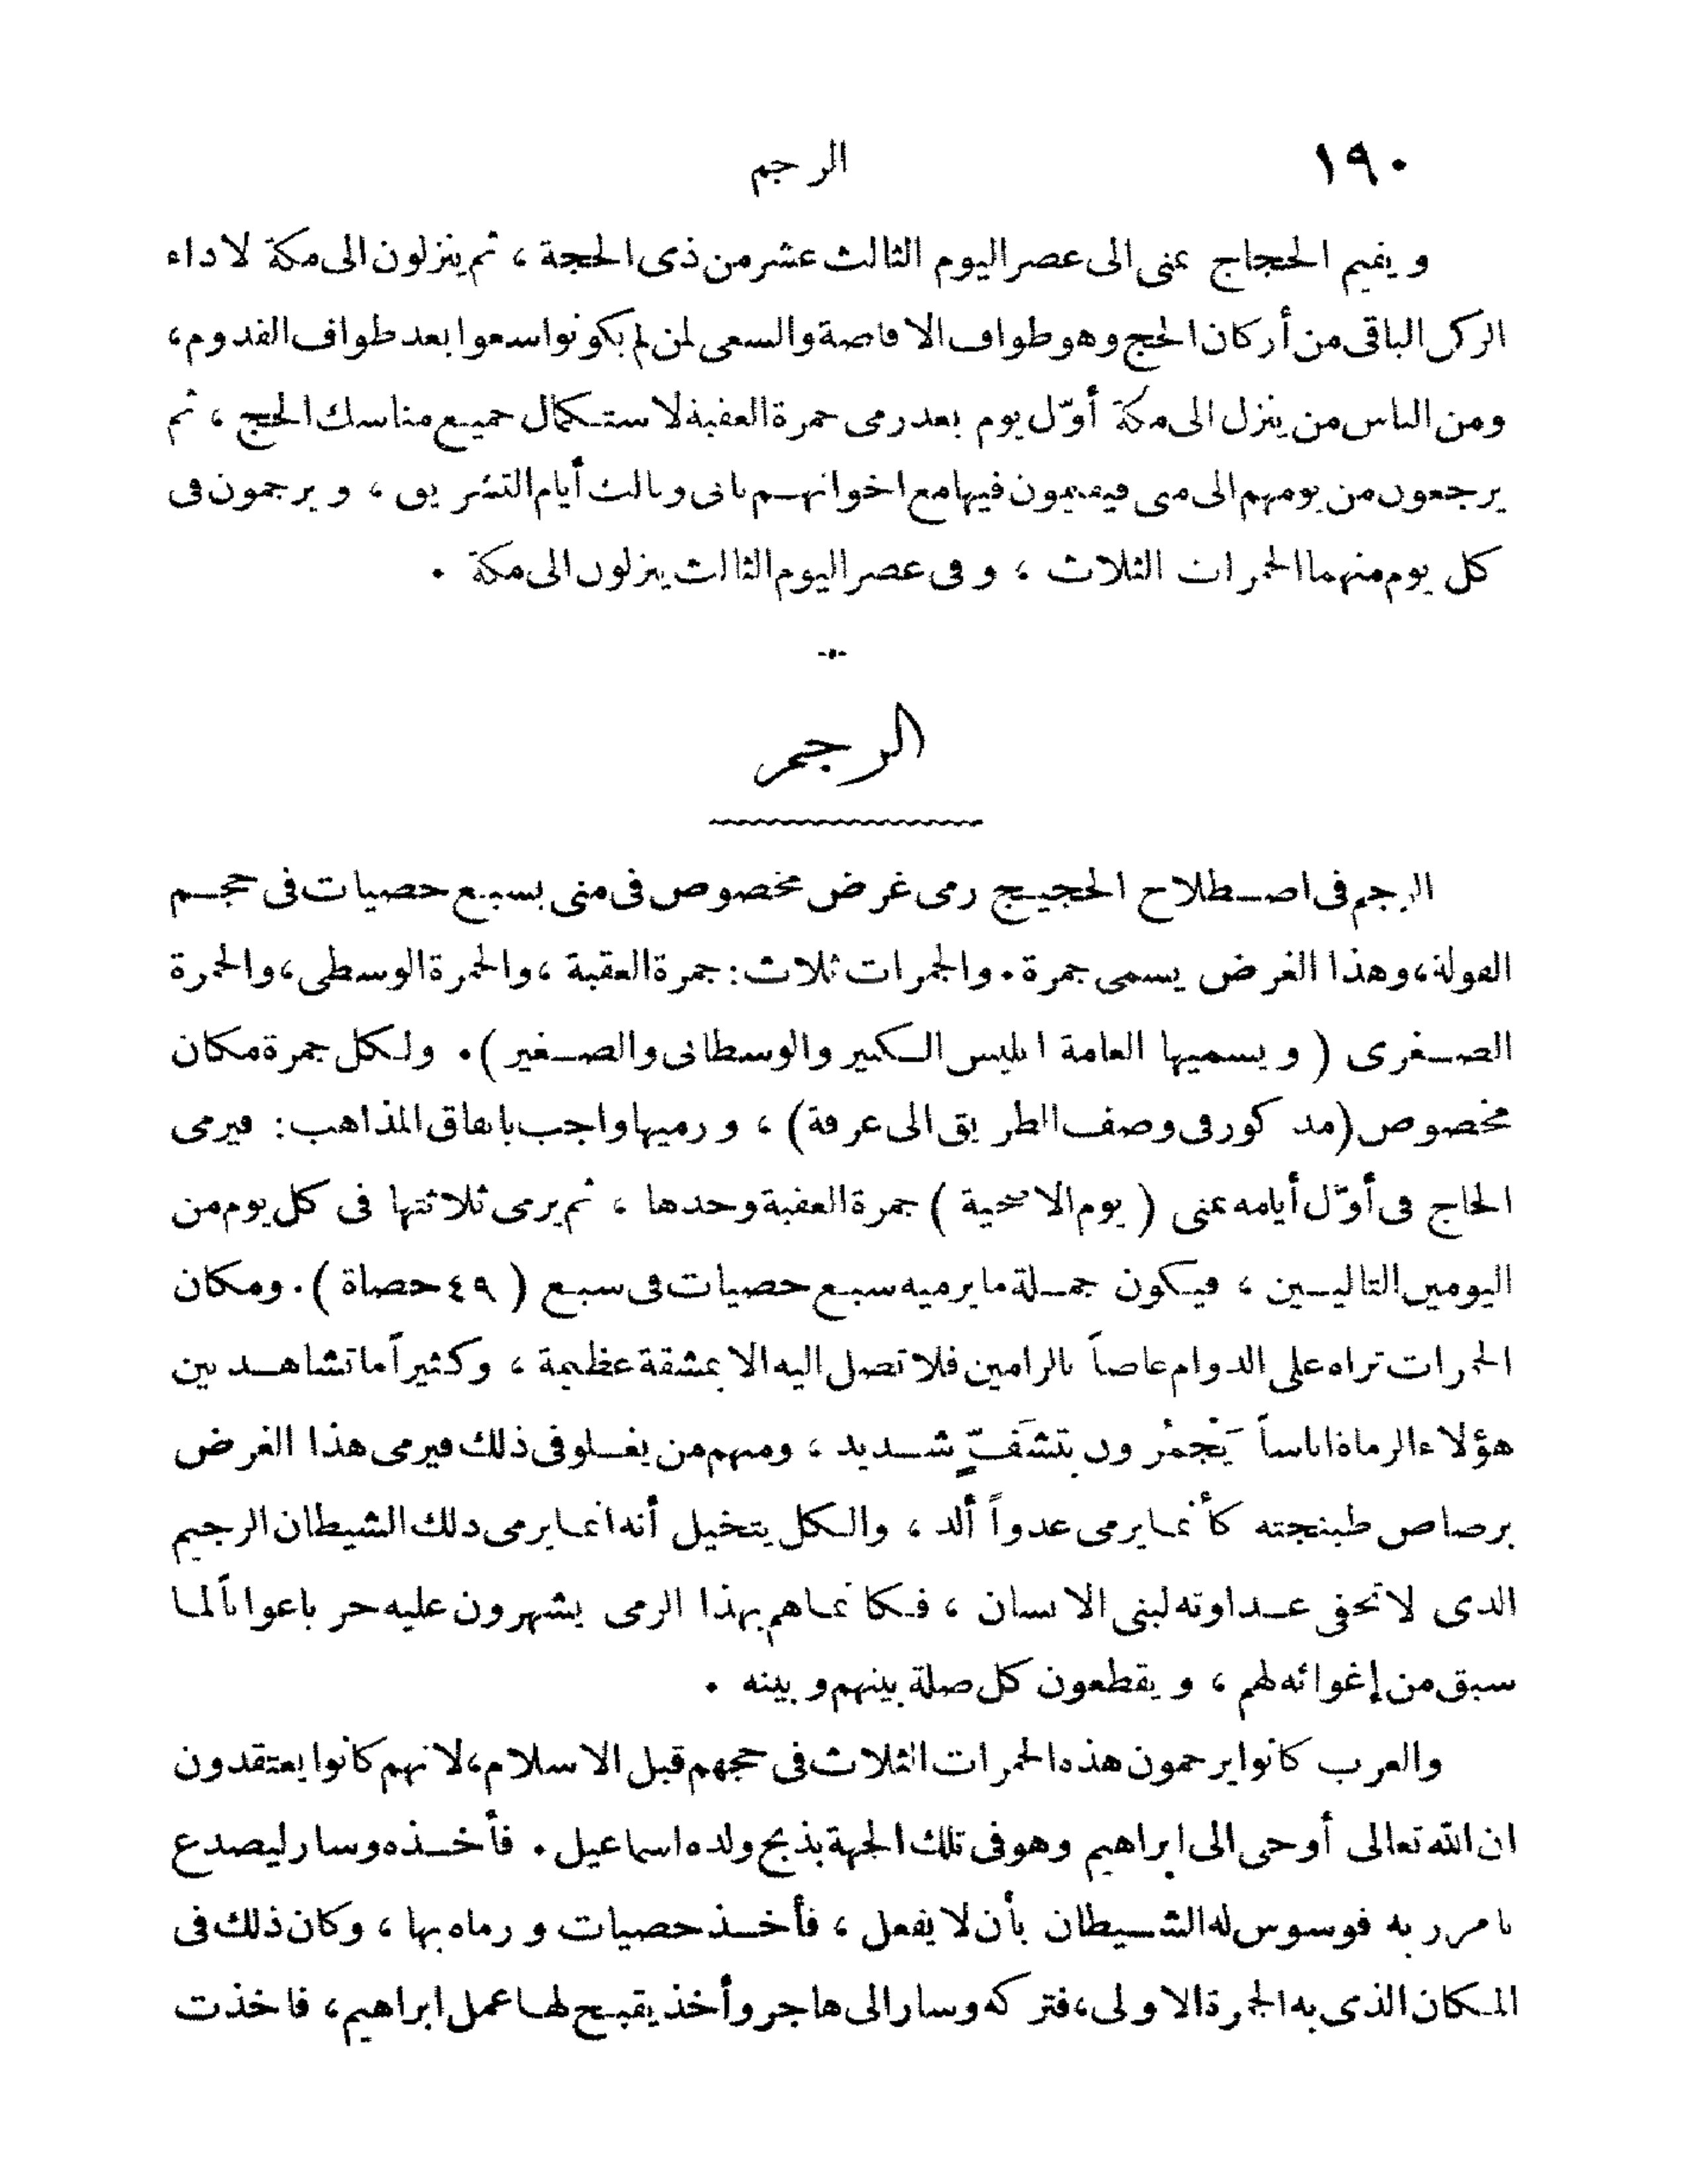 ١٩٠
الرجم
ويقيم الحجاج بمنى الى عصر اليوم الثالث عشر من ذى الحجة ، ثم ينزلون الى مكة لاداء
الركن الباقى من أركان الحج وهو طواف الافاضة والسعى لمن لم يكونوا سعوا بعد طواف القدوم ،
ومن الناس من ينزل الى مكة أوّل يوم بعد رمى جمرة العقبة لاستكمال جميع مناسك الحج ، ثم
يرجعون من يومهم الى منى فيقيمون فيها مع اخوانهم ثانى وثالث أيام التشريق ، ويرجمون فى
كل يوم منهما الجمرات الثلاث ، وفى عصر اليوم الثالث ينزلون الى مكة .
الرجم
الرجم فى اصطلاح الحجيج رمى غرض مخصوص فى منى بسبع حصيات فى حجم
الفولة ، وهذا الغرض يسمى جمرة . والجمرات ثلاث : جمرة العقبة ، والجمرة الوسطى ، والجمرة
الصغرى ( ويسميها العامة ابليس الكبير والوسطانى والصغير ) . ولكل جمرة مكان
مخصوص (مذكور فى وصف الطريق الى عرفة) ، ورميها واجب باتفاق المذاهب : فيرمى
الحاج فى أوّل أيامه بمنى ( يوم الاضحية ) جمرة العقبة وحدها ، ثم يرمى ثلاثتها فى كل يوم من
اليومين التاليين ، فيكون جملة ما يرميه سبع حصيات فى سبع ( ٤٩ حصاة ) . ومكان
الجمرات تراه على الدوام غاصاً بالرامين فلا تصل اليه الا بمشقة عظيمة ، وكثيراً ما تشاهد بين
هؤلاء الرماة اناساً يَجْمُرون بتشَفٍّ شديد ، ومنهم من يغلو فى ذلك فيرمى هذا الغرض
برصاص طبنجته كأنما يرمى عدواً ألد ، والكل يتخيل أنه انما يرمى ذلك الشيطان الرجيم
الذى لا تخفى عداوته لبنى الانسان ، فكانما هم بهذا الرمى يشهرون عليه حربا عوانا لما
سبق من إغوائه لهم ، ويقطعون كل صلة بينهم وبينه .
والعرب كانوا يرجمون هذه الجمرات الثلاث فى حجهم قبل الاسلام ، لانهم كانوا يعتقدون
ان الله تعالى أوحى الى ابراهيم وهو فى تلك الجهة بذبح ولده اسماعيل . فأخذه وسار ليصدع
بامر ربه فوسوس له الشيطان بأن لا يفعل ، فأخذ حصيات ورماه بها ، وكان ذلك فى
المكان الذى به الجمرة الاولى ، فتركه وسار الى هاجر وأخذ يقبح لها عمل ابراهيم ، فاخذت